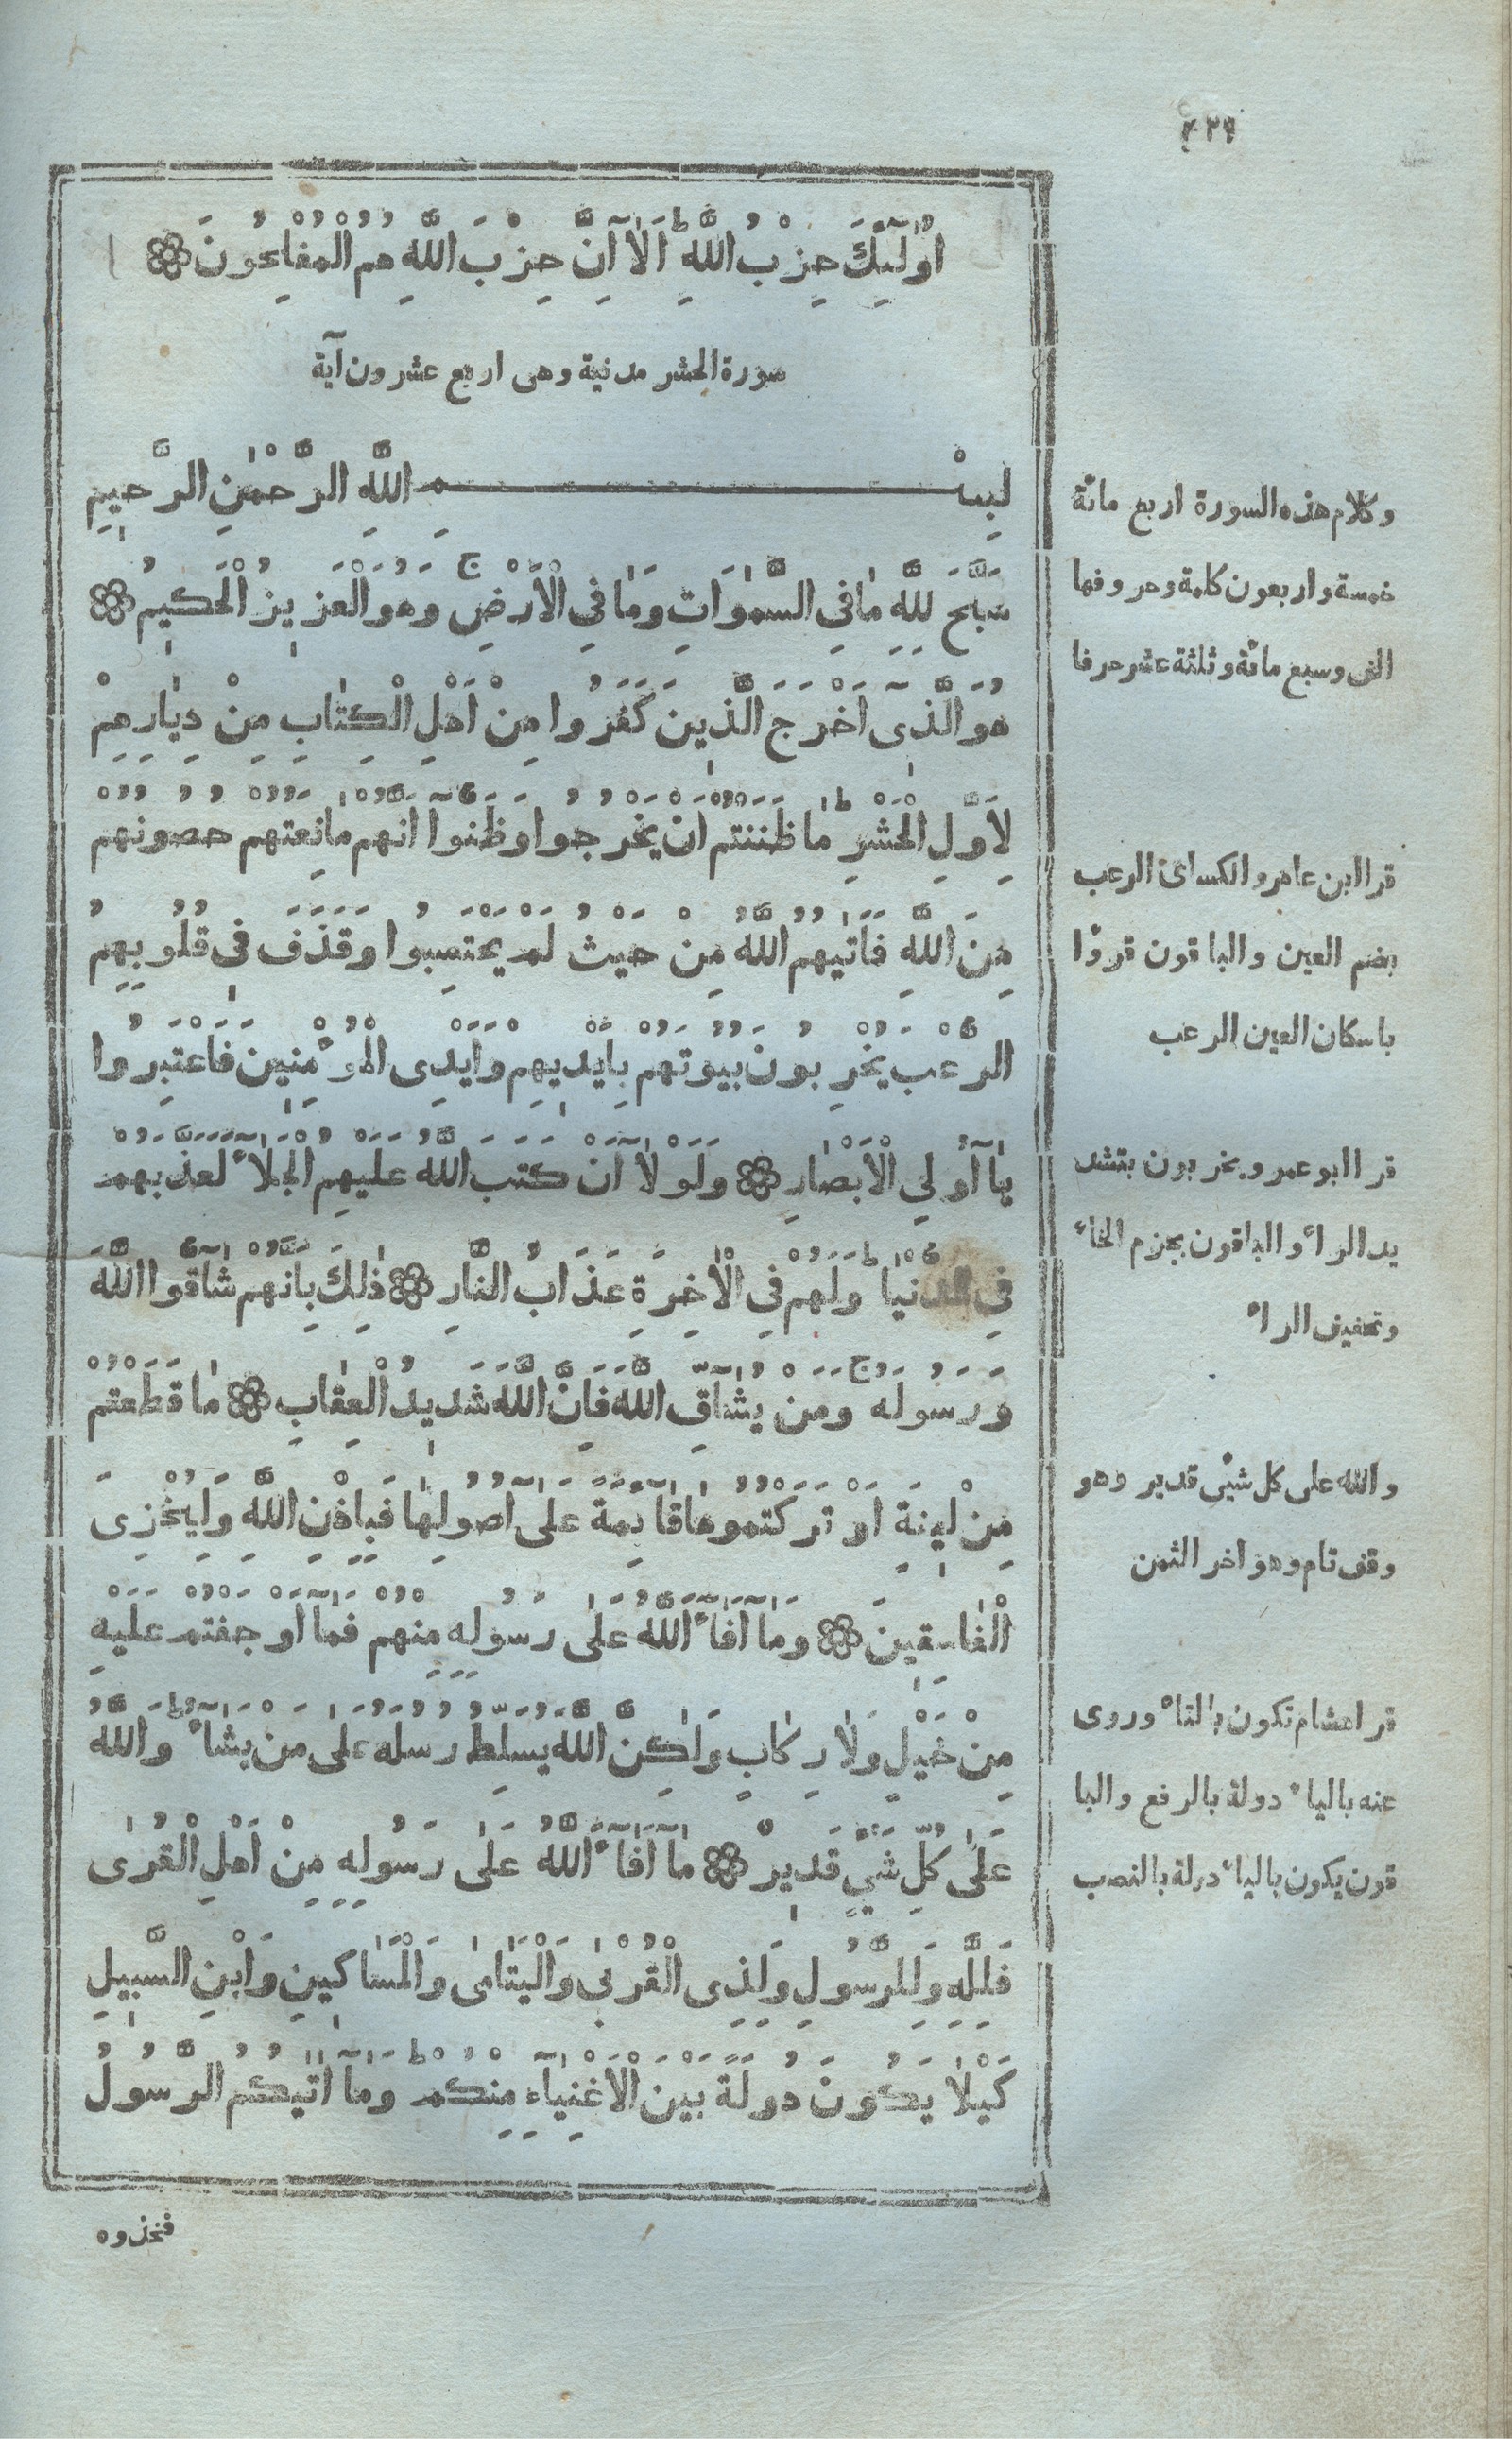 ٤٣٩
اُولٰٓئِكَ حِزْبُ اللَّهِ ط اَلَآ اِنَّ حِزْبَ اللَّهِ هُمُ الْمُفْلِحُونَ
سورة الحشر مدنية وهى اربع عشرون آية
بِسْمِ اللَّهِ الرَّحْمٰنِ الرَّحِيمِ
سَبَّحَ لِلَّهِ مَا فِي السَّمٰوَاتِ وَمَا فِي الْاَرْضِ ج وَهُوَ الْعَزِيزُ الْحَكِيمُ
هُوَ الَّذِىٓ اَخْرَجَ الَّذِينَ كَفَرُوا مِنْ اَهْلِ الْكِتَابِ مِنْ دِيَارِهِمْ
لِاَوَّلِ الْحَشْرِ ط مَا ظَنَنْتُمْ اَنْ يَخْرُجُوا وَظَنُّوٓا اَنَّهُمْ مَانِعَتُهُمْ حُصُونُهُمْ
مِنَ اللَّهِ فَاَتٰيهُمُ اللَّهُ مِنْ حَيْثُ لَمْ يَحْتَسِبُوا وَقَذَفَ فِى قُلُوبِهِمُ
الرُّعْبَ يُخْرِبُونَ بُيُوتَهُمْ بِاَيْدِيهِمْ وَاَيْدِى الْمُؤْمِنِينَ فَاعْتَبِرُوا
يَآ اُولِي الْاَبْصَارِ وَلَوْلَآ اَنْ كَتَبَ اللَّهُ عَلَيْهِمُ الْجَلَآءَ لَعَذَّبَهُمْ
فِي الدُّنْيَا ط وَلَهُمْ فِي الْاٰخِرَةِ عَذَابُ النَّارِ ذٰلِكَ بِاَنَّهُمْ شَآقُّوا اللَّهَ
وَرَسُولَهُ ج وَمَنْ يُشَآقِّ اللَّهَ فَاِنَّ اللَّهَ شَدِيدُ الْعِقَابِ مَا قَطَعْتُمْ
مِنْ لِينَةٍ اَوْ تَرَكْتُمُوهَا قَآئِمَةً عَلٰٓى اُصُولِهَا فَبِاِذْنِ اللَّهِ وَلِيُخْزِىَ
الْفَاسِقِينَ وَمَآ اَفَآءَ اللَّهُ عَلٰى رَسُولِهِ مِنْهُمْ فَمَآ اَوْجَفْتُمْ عَلَيْهِ
مِنْ خَيْلٍ وَلَا رِكَابٍ وَلٰكِنَّ اللَّهَ يُسَلِّطُ رُسُلَهُ عَلٰى مَنْ يَشَآءُ ط وَاللَّهُ
عَلٰى كُلِّ شَيْءٍ قَدِيرٌ مَآ اَفَآءَ اللَّهُ عَلٰى رَسُولِهِ مِنْ اَهْلِ الْقُرٰى
فَلِلَّهِ وَلِلرَّسُولِ وَلِذِى الْقُرْبٰى وَالْيَتَامٰى وَالْمَسَاكِينِ وَابْنِ السَّبِيلِ
كَيْلَا يَكُونَ دُولَةً بَيْنَ الْاَغْنِيَآءِ مِنْكُمْ ط وَمَآ اٰتٰيكُمُ الرَّسُولُ
فخذوه
وكلام هذه السورة اربع مائة
خمسة واربعون كلمة وحروفها
الف وسبع مائة وثلثة عشر حرفا
قرا ابن عامر والكسائى الرعب
بضم العين والباقون قروٴا
باسكان العين الرعب
قرا ابو عمرو يخربون بتشد
يد الراء والباقون بجزم الخاء
وتخفيف الراء
والله على كل شيٴى قدير وهو
وقف تام وهو اخر الثمن
قرا هشام تكون بالتاء وروى
عنه بالياء دولة بالرفع والبا
قون يكون بالياء دولة بالنصب